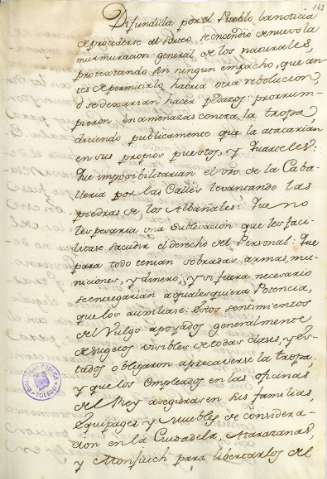 Difundida por el Pueblo la noticia
de procederse al Sorteo, se encendió de nuevo la
murmuracion general de los naturales,
protextando sin ningun empacho, que an-
tes de permitirlo habria otra rebolucion,
ó se dexarian hacer pedazos: prorrum-
pieron en amenazas contra la tropa,
diciendo publicamente que la atacarian
en sus propios puestos, y Quarteles:
Que imposibilitarian el uso de la Caba-
lleria por las Calles levantando las
piedras de los Albañales: Que no
les pesaria una Sublevacion que les faci-
litase sacudir el derecho del Personal: Que
para todo tenian sobradas armas, mu-
niciones, y dinero, y si fuera necesario
se entregarian a qualesquiera Potencia,
que los auxiliase: Estos sentimientos
del Vulgo apoyados generalmente
de sugetos visibles de todas clases, y es-
tados obligaron a precaverse la tropa,
y que los Empleados en las oficinas
del Rey asegurasen sus familias,
Equipages y Muebles de considera-
cion en la Ciudadela, Atarazanas,
y Monjuich para libertarlos del